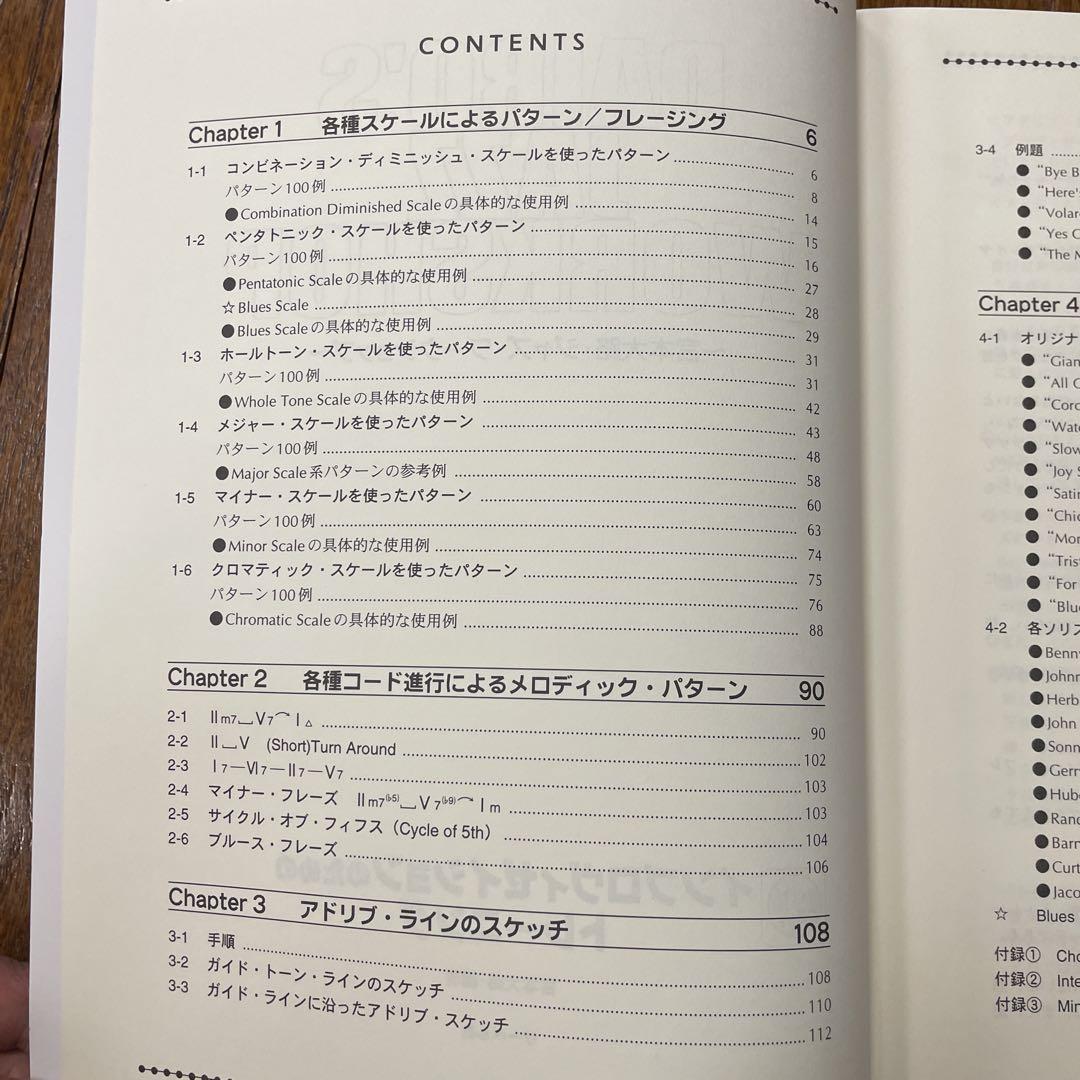 CONTENTS
Chapter 1 各種スケールによるパターン／フレージング 6
1-1 コンビネーション・ディミニッシュ・スケールを使ったパターン 6
パターン100例 8
●Combination Diminished Scaleの具体的な使用例 14
1-2 ペンタトニック・スケールを使ったパターン 15
パターン100例 16
●Pentatonic Scaleの具体的な使用例 27
☆Blues Scale 28
●Blues Scaleの具体的な使用例 29
1-3 ホールトーン・スケールを使ったパターン 31
パターン100例 31
●Whole Tone Scaleの具体的な使用例 42
1-4 メジャー・スケールを使ったパターン 43
パターン100例 48
●Major Scale系パターンの参考例 58
1-5 マイナー・スケールを使ったパターン 60
パターン100例 63
●Minor Scaleの具体的な使用例 74
1-6 クロマティック・スケールを使ったパターン 75
パターン100例 76
●Chromatic Scaleの具体的な使用例 88
Chapter 2 各種コード進行によるメロディック・パターン 90
2-1 Ⅱm7⎵Ⅴ7⌒Ⅰ△ 90
2-2 Ⅱ⎵Ⅴ (Short)Turn Around 102
2-3 Ⅰ7—Ⅵ7—Ⅱ7—Ⅴ7 103
2-4 マイナー・フレーズ Ⅱm7(♭5)⎵Ⅴ7(♭9)⌒Ⅰm 103
2-5 サイクル・オブ・フィフス（Cycle of 5th） 104
2-6 ブルース・フレーズ 106
Chapter 3 アドリブ・ラインのスケッチ 108
3-1 手順 108
3-2 ガイド・トーン・ラインのスケッチ 110
3-3 ガイド・ラインに沿ったアドリブ・スケッチ 112
3-4 例題
●“Bye B
●“Here's
●“Volar
●“Yes C
●“The M
Chapter 4
4-1 オリジナ
●“Gian
●“All G
●“Corc
●“Wate
●“Slow
●“Joy S
●“Satin
●“Chic
●“Mor
●“Trist
●“For
●“Blue
4-2 各ソリス
●Benny
●Johnn
●Herb
●John
●Sonn
●Gerry
●Hube
●Rand
●Barn
●Curt
●Jaco
☆ Blues
付録① Cho
付録② Inte
付録③ Min